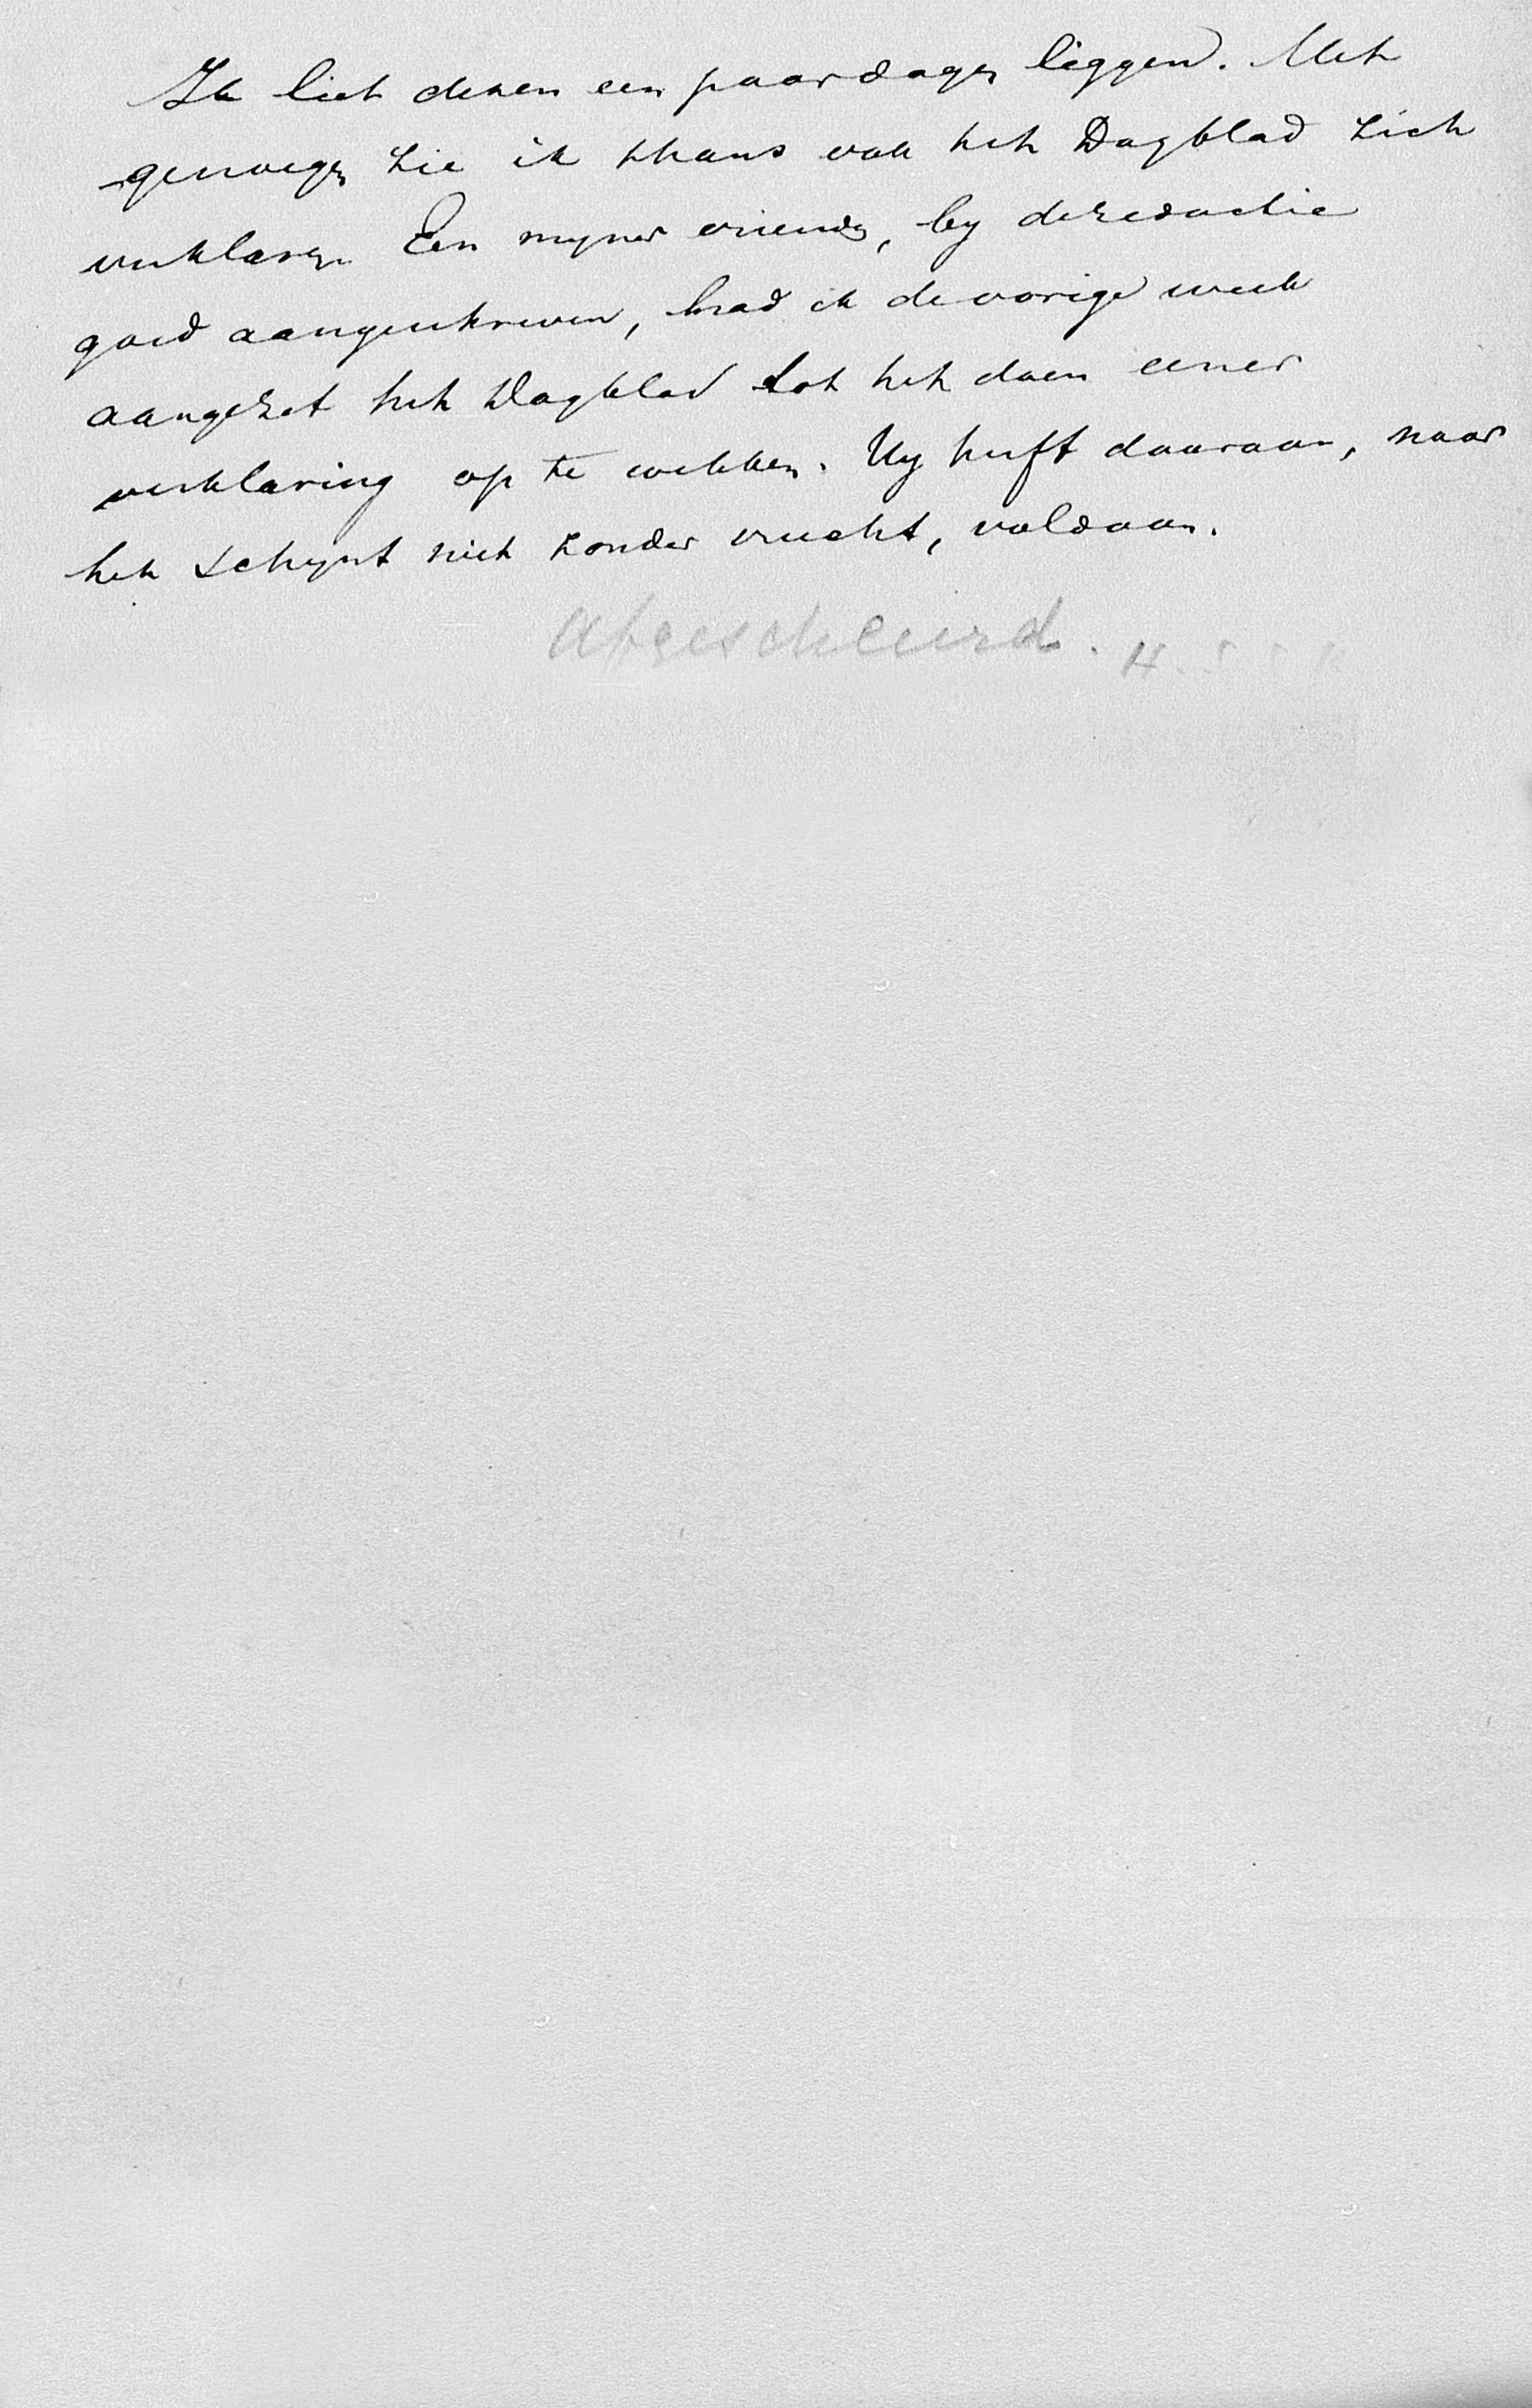 Ik liet dezen een paar dagen liggen. Met
genoegen zie ik thans ook het Dagblad zich
verklaren. Een myner vrienden, by de redactie
goed aangeschreven, had ik de vorige week
aangezet het Dagblad tot het doen eener
verklaring op te wekken. Hy heeft daaraan, naar
het schynt niet zonder vrucht, voldaan.
Afgescheurd. H.